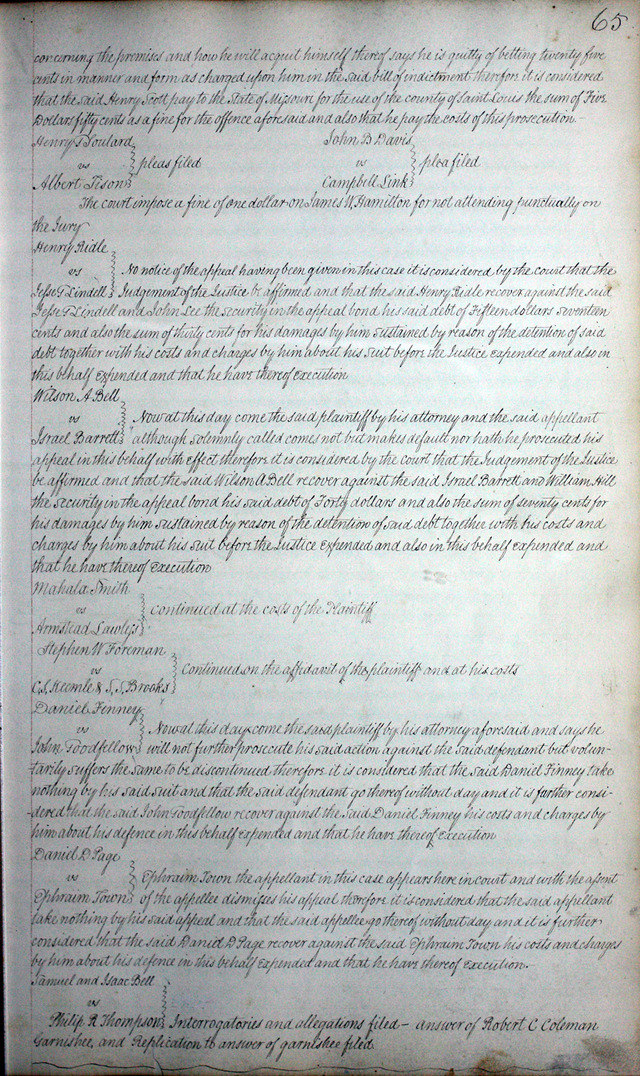 65
concerning the premises and how he will acquit himself thereof says he is guilty of betting twenty five
cents in manner and form as charged upon him in the said bill of indictment therefore it is considered
that the said Henry Scott pay to the State of Missouri for the use of the county of Saint Louis the sum of Five
Dollars fifty cents as a fine for the offence aforesaid and also that he pay the costs of this prosecution.-
Henry T Soulard
vs pleas filed
Albert Tison
John B Davis
vs plea filed
Campbell Link
The court impose a fine of one dollar on James W Hamilton for not attending punctually on
the Jury
Henry Ridle
vs No notice of the appeal having been given in this case it is considered by the court that the
Jesse T Lindell Judgement of the Justice be affirmed and that the said Henry Ridle recover against the said
Jesse T Lindell and John Lee the security in the appeal bond his said debt of Fifteen dollars seventeen
cents and also the sum of thirty cents for his damages by him sustained by reason of the detention of said
debt together with his costs and charges by him about his suit before the Justice expended and also in
this behalf expended and that he have thereof execution
Wilson A Bell
vs Now at this day come the said plaintiff by his attorney and the said appellant
Israel Barrett although solemnly called comes not but makes default nor hath he prosecuted his
appeal in this behalf with effect therefore it is considered by the court that the Judgement of the Justice
be affirmed and that the said Wilson A Bell recover against the said Israel Barrett and William Hill
the security in the appeal bond his said debt of Forty dollars and also the sum of seventy cents for
his damages by him sustained by reason of the detention of said debt together with his costs and
charges by him about his suit before the Justice expended and also in this behalf expended and
that he have thereof execution
Mahala Smith
vs continued at the costs of the Plaintiff
Armstead Lawless
Stephen W Foreman
vs Continued on the affidavit of the plaintiff and at his costs
C. S. Keemle & S. S. Brooks
Daniel Finney
vs Now at this day come the said plaintiff by his attorney aforesaid and says he
John Goodfellow will not further prosecute his said action against the said defendant but volun-
tarily suffers the same to be discontinued therefore it is considered that the said Daniel Finney take
nothing by his said suit and that the said defendant go thereof without day and it is further consi-
dered that the said John Goodfellow recover against the said Daniel Finney his costs and charges by
him about his defence in this behalf expended and that he have thereof execution
Daniel D Page
vs Ephraim Town the appellant in this case appears here in court and with the assent
Ephraim Town of the appellee dismisses his appeal therefore it is considered that the said appellant
take nothing by his said appeal and that the said appellee go thereof without day and it is further
considered that the said Daniel D Page recover against the said Ephraim Town his costs and charges
by him about his defence in this behalf expended and that he have thereof execution.-
Samuel and Isaac Bell
vs
Philip R Thompson Interrogatories and allegations filed - answer of Robert C Coleman
Garnishee, and Replication to answer of garnishee filed